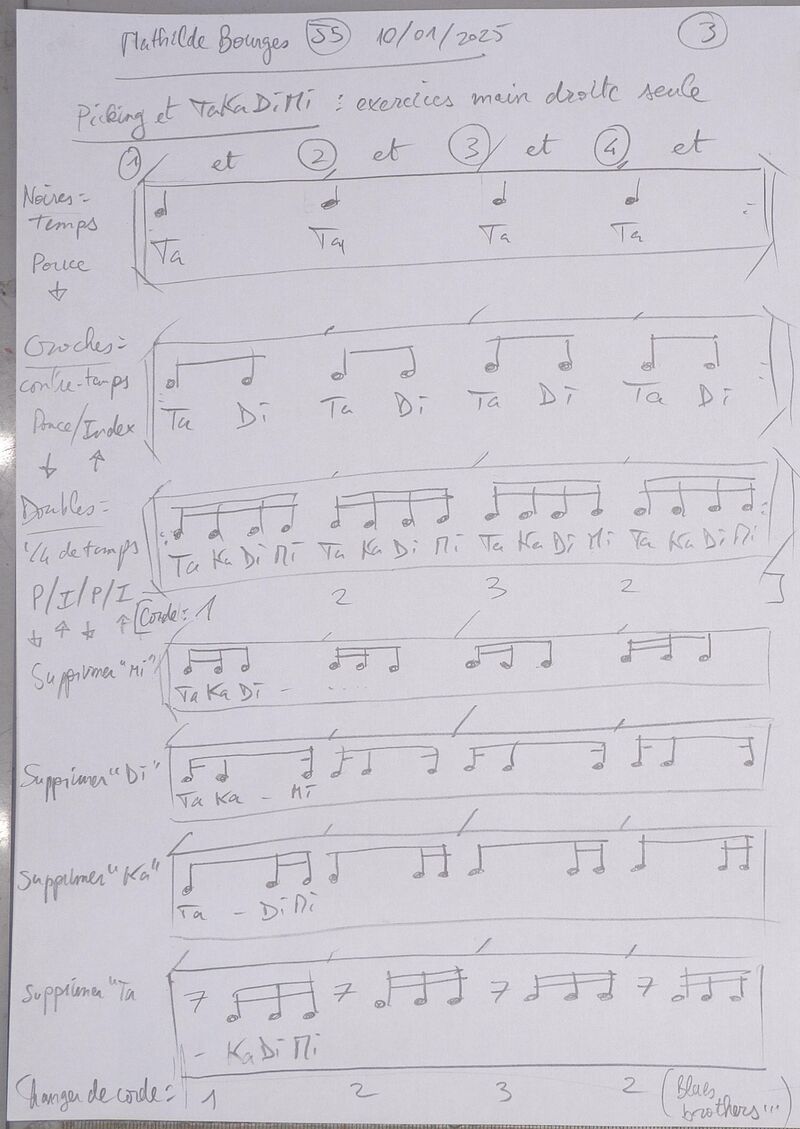 Mathilde Bourges 55 10/01/2025 3
Picking et TaKaDiMi : exercices main droite seule
1 et 2 et 3 et 4 et
Noires =
temps
Pouce
Ta Ta Ta Ta
Croches =
contre-temps
Pouce/Index
Ta Di Ta Di Ta Di Ta Di
Doubles =
1/4 de temps
P/I/P/I
Ta Ka Di Mi Ta Ka Di Mi Ta Ka Di Mi Ta Ka Di Mi
[Corde : 1 2 3 2 ]
Supprimer "Mi"
Ta Ka Di - .....
Supprimer "Di"
Ta Ka - Mi
Supprimer "Ka"
Ta - Di Mi
Supprimer "Ta
- Ka Di Mi
Changer de corde = 1 2 3 2 (Blues
brothers...)